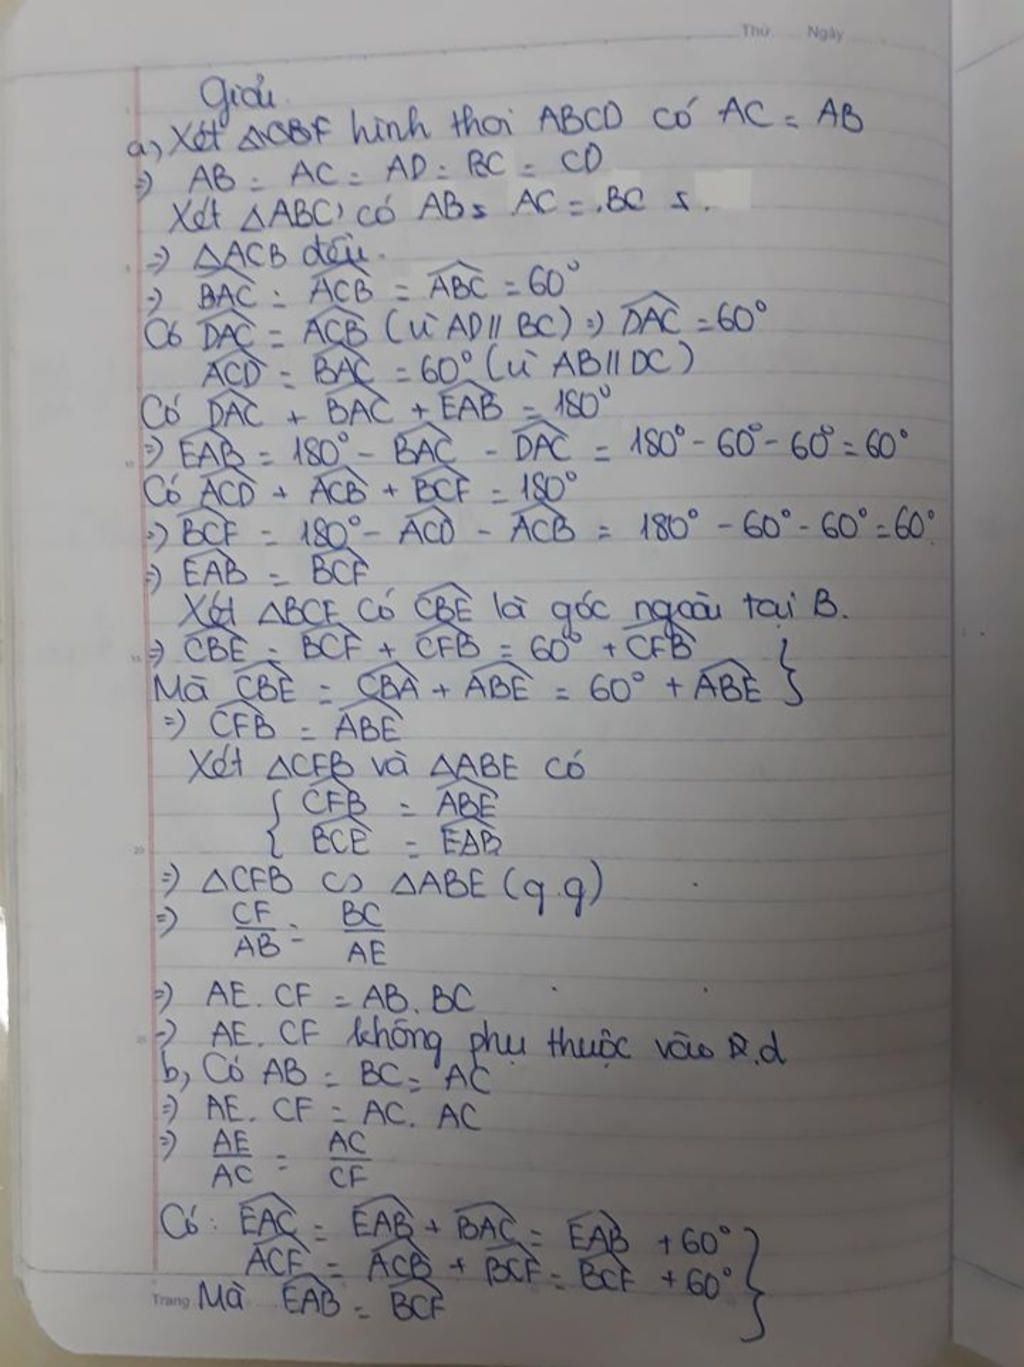 Thứ Ngày
Giải
a, Xét △CBF hình thoi ABCD có AC = AB
=> AB = AC = AD = BC = CD
Xét △ABC có AB = AC = BC
=> △ACB đều.
=> \widehat{BAC} = \widehat{ACB} = \widehat{ABC} = 60°
Có \widehat{DAC} = \widehat{ACB} (vì AD // BC) => \widehat{DAC} = 60°
\widehat{ACD} = \widehat{BAC} = 60° (vì AB // DC)
Có \widehat{DAC} + \widehat{BAC} + \widehat{EAB} = 180°
=> \widehat{EAB} = 180° - \widehat{BAC} - \widehat{DAC} = 180° - 60° - 60° = 60°
Có \widehat{ACD} + \widehat{ACB} + \widehat{BCF} = 180°
=> \widehat{BCF} = 180° - \widehat{ACD} - \widehat{ACB} = 180° - 60° - 60° = 60°
=> \widehat{EAB} = \widehat{BCF}
Xét △BCF có \widehat{CBE} là góc ngoài tại B.
=> \widehat{CBE} = \widehat{BCF} + \widehat{CFB} = 60° + \widehat{CFB}
Mà \widehat{CBE} = \widehat{CBA} + \widehat{ABE} = 60° + \widehat{ABE} }
=> \widehat{CFB} = \widehat{ABE}
Xét △CFB và △ABE có
{ \widehat{CFB} = \widehat{ABE}
\widehat{BCF} = \widehat{EAB}
=> △CFB ∽ △ABE (g.g)
=> CF/AB = BC/AE
=> AE. CF = AB. BC
=> AE. CF không phụ thuộc vào d
b, Có AB = BC = AC
=> AE. CF = AC. AC
=> AE/AC = AC/CF
Có: \widehat{EAC} = \widehat{EAB} + \widehat{BAC} = \widehat{EAB} + 60°
\widehat{ACF} = \widehat{ACB} + \widehat{BCF} = \widehat{BCF} + 60° }
Trang Mà \widehat{EAB} = \widehat{BCF}